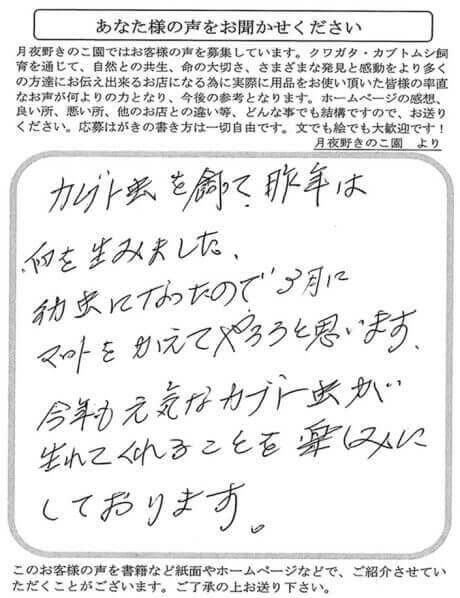 あなた様の声をお聞かせください
月夜野きのこ園ではお客様の声を募集しています。クワガタ・カブトムシ飼
育を通じて、自然との共生、命の大切さ、さまざまな発見と感動をより多く
の方達にお伝え出来るお店になる為に実際に用品をお使い頂いた皆様の率直
なお声が何よりの力となり、今後の参考となります。ホームページの感想、
良い所、悪い所、他のお店との違い等、どんな事でも結構ですので、お送り
ください。応募はがきの書き方は一切自由です。文でも絵でも大歓迎です！
月夜野きのこ園　より
カブト虫を飼って、昨年は
卵を生みました、
幼虫になったので3月に
マットをかえてやろうと思います、
今年も元気なカブト虫が
生れてくれることを楽しみに
しております。
このお客様の声を書籍など紙面やホームページなどで、ご紹介させてい
ただくことがございます。ご了承の上お送り下さい。